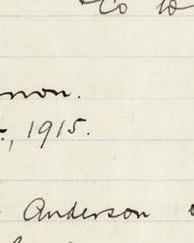 Co to
non.
, 1915.
Anderson